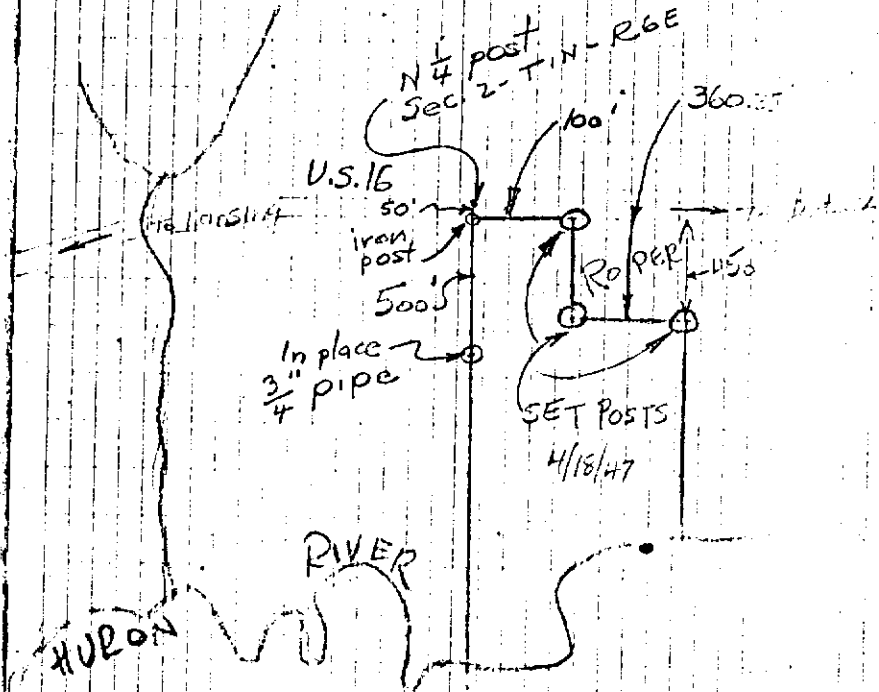 N 1/4 post
Sec. 2 - T.1N - R6E
100'
U.S.16
50'
iron
post
ROPER
450
500's
In place
3/4" pipe
SET POSTS
4/18/47
RIVER
HURON